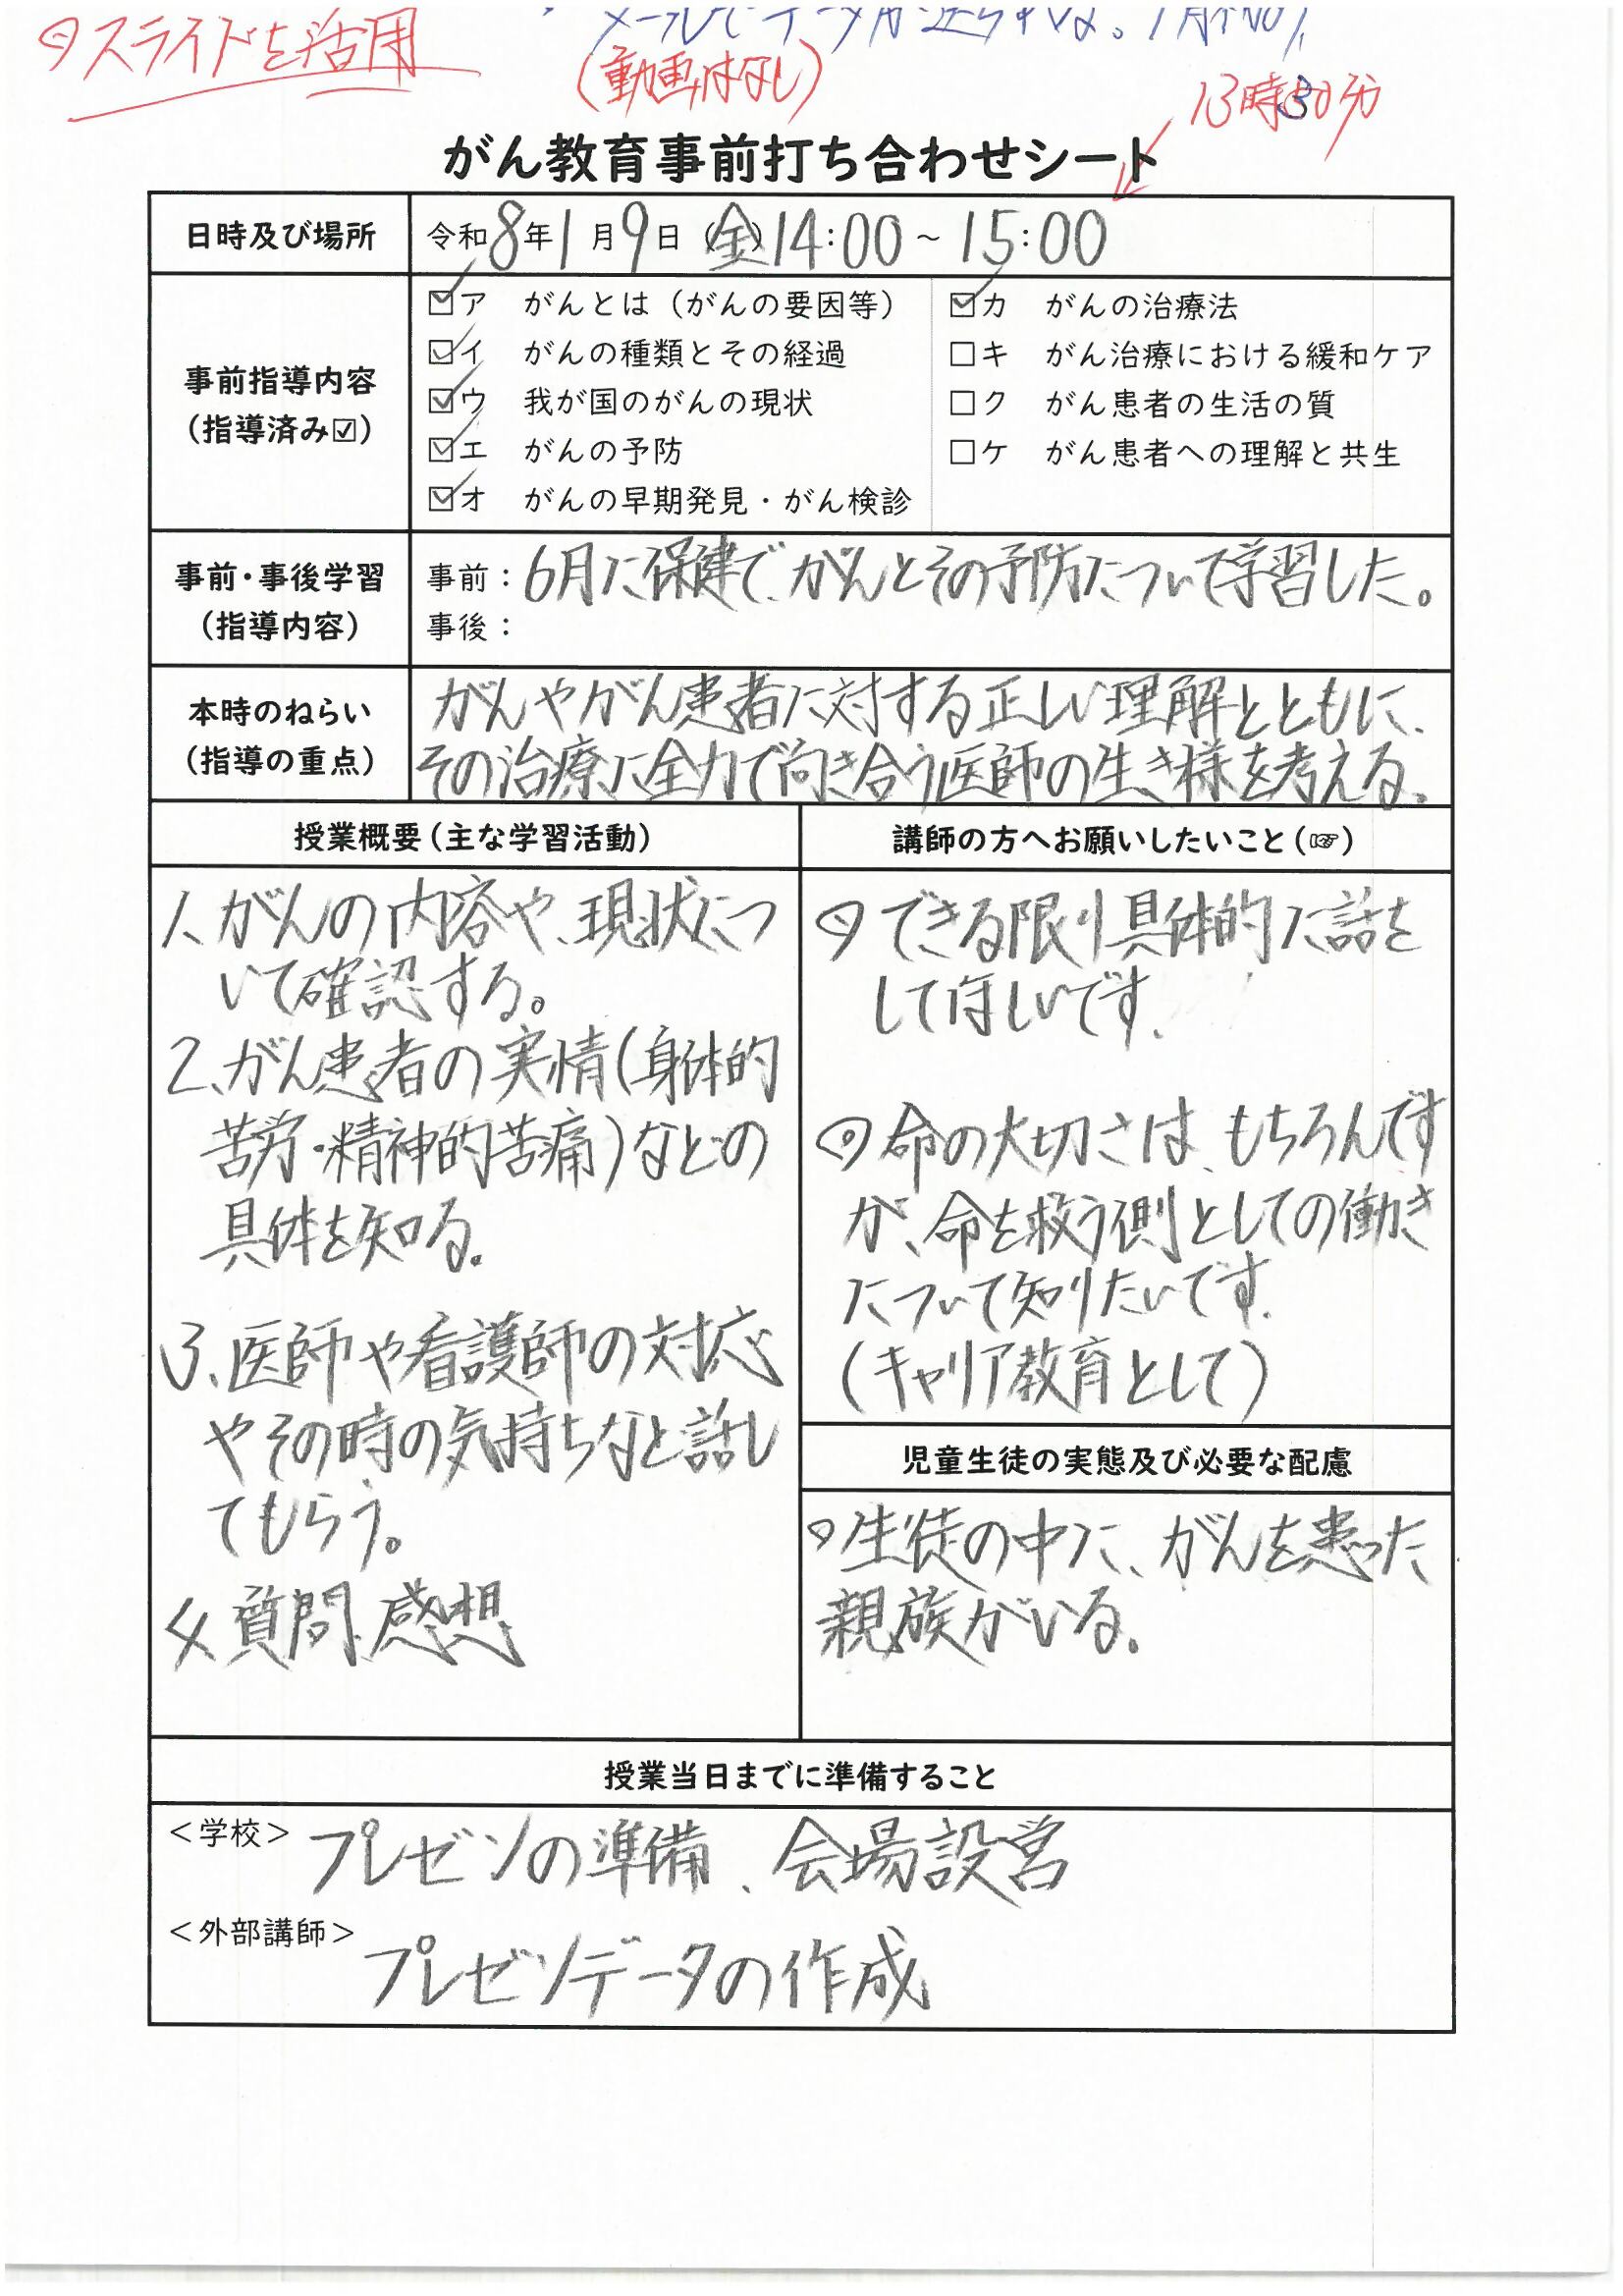 スライドを活用
メールでデータが送られる。1月
(動画はなし)
13時30分
がん教育事前打ち合わせシート
日時及び場所
令和8年1月9日(金)14:00~15:00
事前指導内容
(指導済み☑)
☑ア がんとは(がんの要因等)
☑イ がんの種類とその経過
☑ウ 我が国のがんの現状
☑エ がんの予防
☑オ がんの早期発見・がん検診
☑カ がんの治療法
☐キ がん治療における緩和ケア
☐ク がん患者の生活の質
☐ケ がん患者への理解と共生
事前・事後学習
(指導内容)
事前:6月に保健で、がんとその予防について学習した。
事後:
本時のねらい
(指導の重点)
がんやがん患者に対する正しい理解とともに、
その治療に全力で向き合う医師の生き様を考える。
授業概要(主な学習活動)
1、がんの内容や、現状につ
いて確認する。
2、がん患者の実情(身体的
苦労・精神的苦痛)などの
具体を知る。
3、医師や看護師の対応
やその時の気持ちなど話し
てもらう。
4、質問、感想
講師の方へお願いしたいこと(☞)
できる限り具体的に話を
してほしいです。
命の大切さは、もちろんです
が、命を救う側としての働き
について知りたいです。
(キャリア教育として)
児童生徒の実態及び必要な配慮
生徒の中に、がんを患った
親族がいる。
授業当日までに準備すること
<学校> プレゼンの準備、会場設営
<外部講師> プレゼンデータの作成